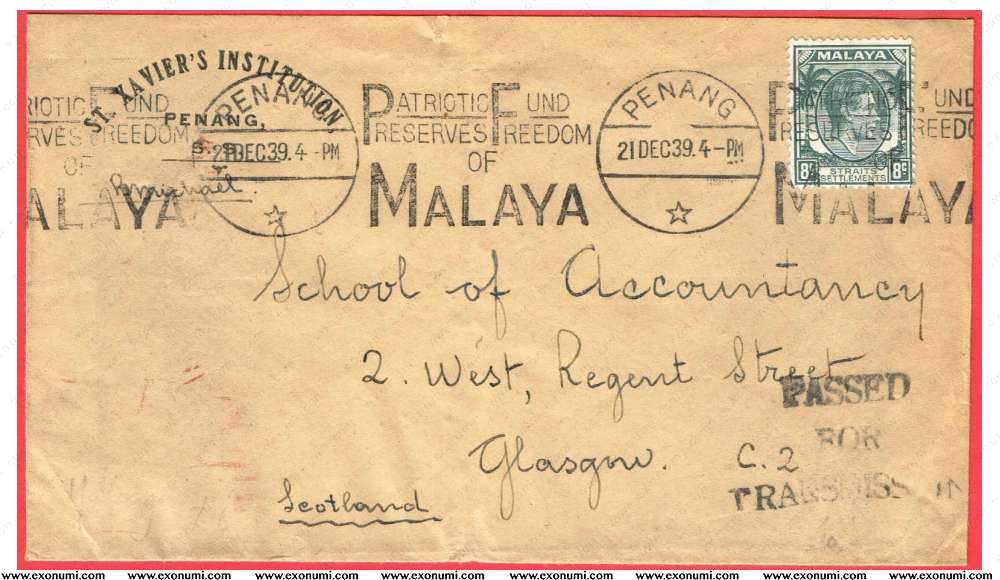 ST. XAVIER'S INSTITUTION,
PENANG,
PENANG
21 DEC 39. 4-PM
PATRIOTIC FUND
PRESERVES FREEDOM
OF
MALAYA
PENANG
21 DEC 39. 4-PM
MALAYA
8c STRAITS SETTLEMENTS 8c
RIOTIC FUND
SERVES FREEDOM
OF
ALAYA
UND
REEDO
MALAYA
School of Accountancy
2. West, Regent Street
Glasgow.
Scotland
C. 2
PASSED
FOR
TRANSMISSION
www.exonumi.com www.exonumi.com www.exonumi.com www.exonumi.com www.exonumi.com www.exonumi.com www.exonumi.com